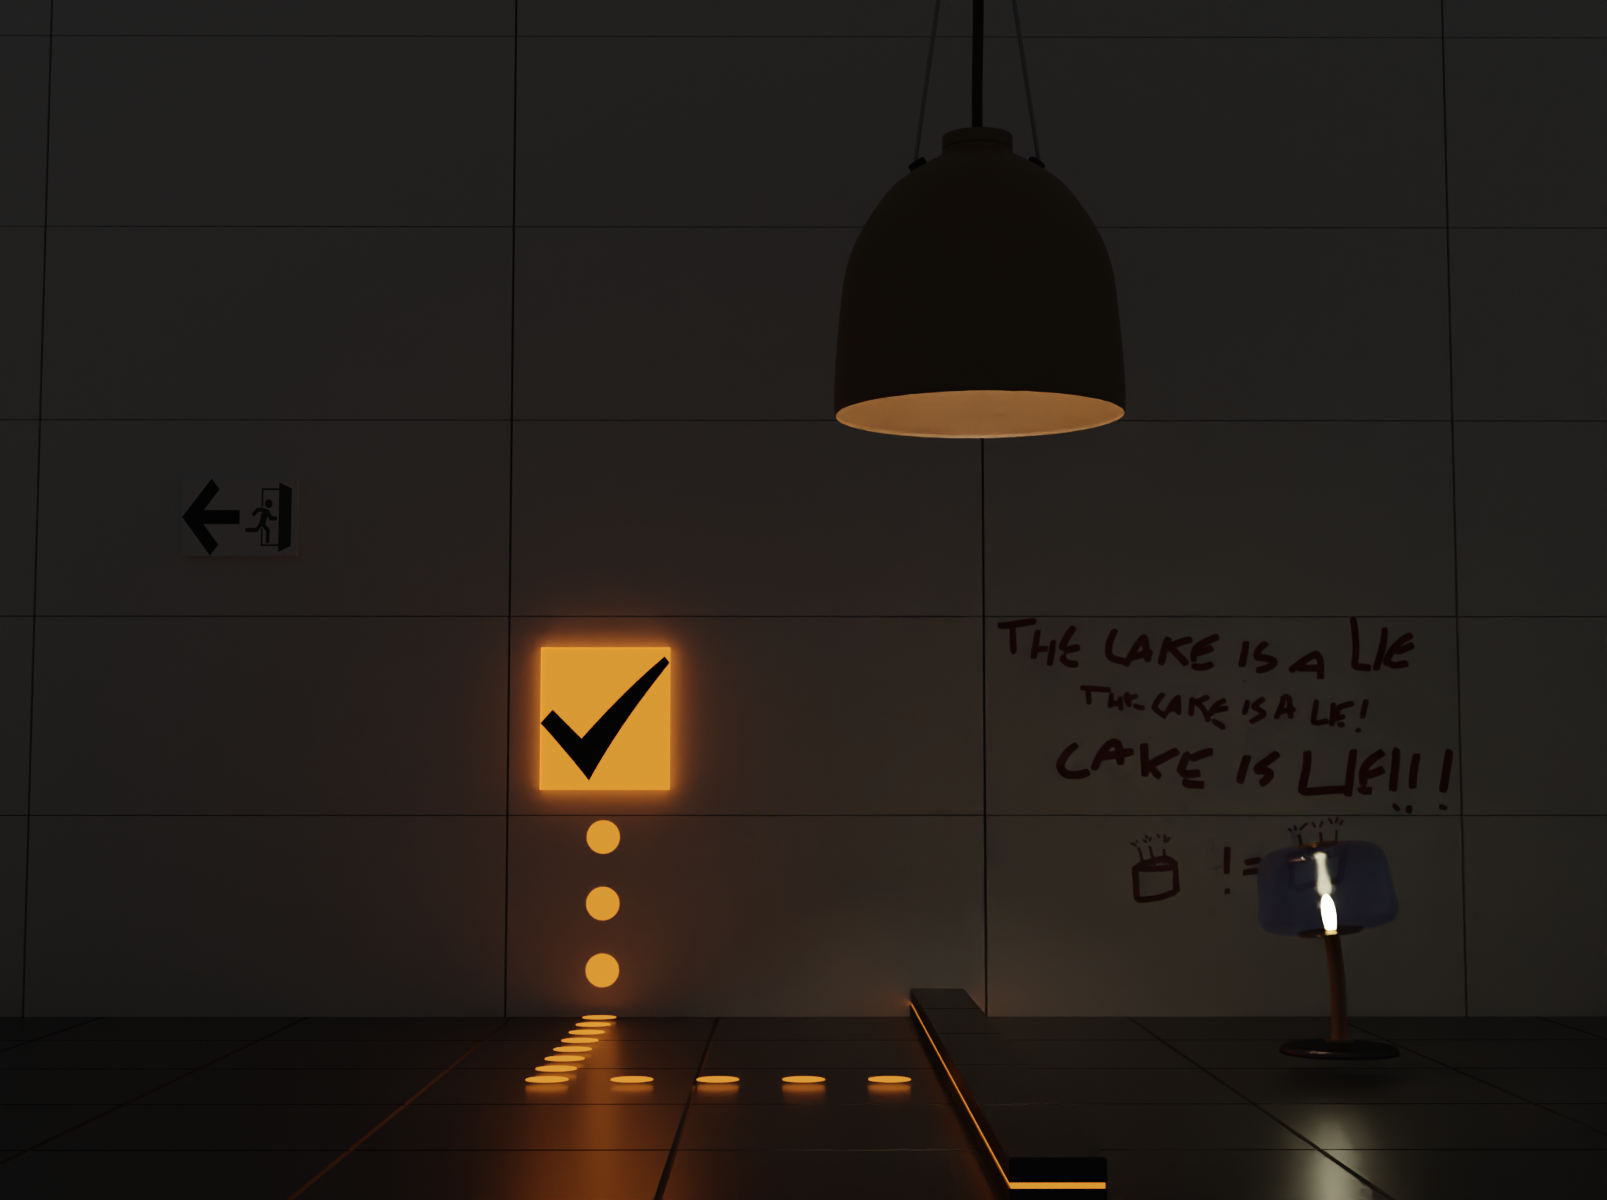 THE CAKE IS A LIE
THE CAKE IS A LIE!
CAKE IS LIE!!!
!=